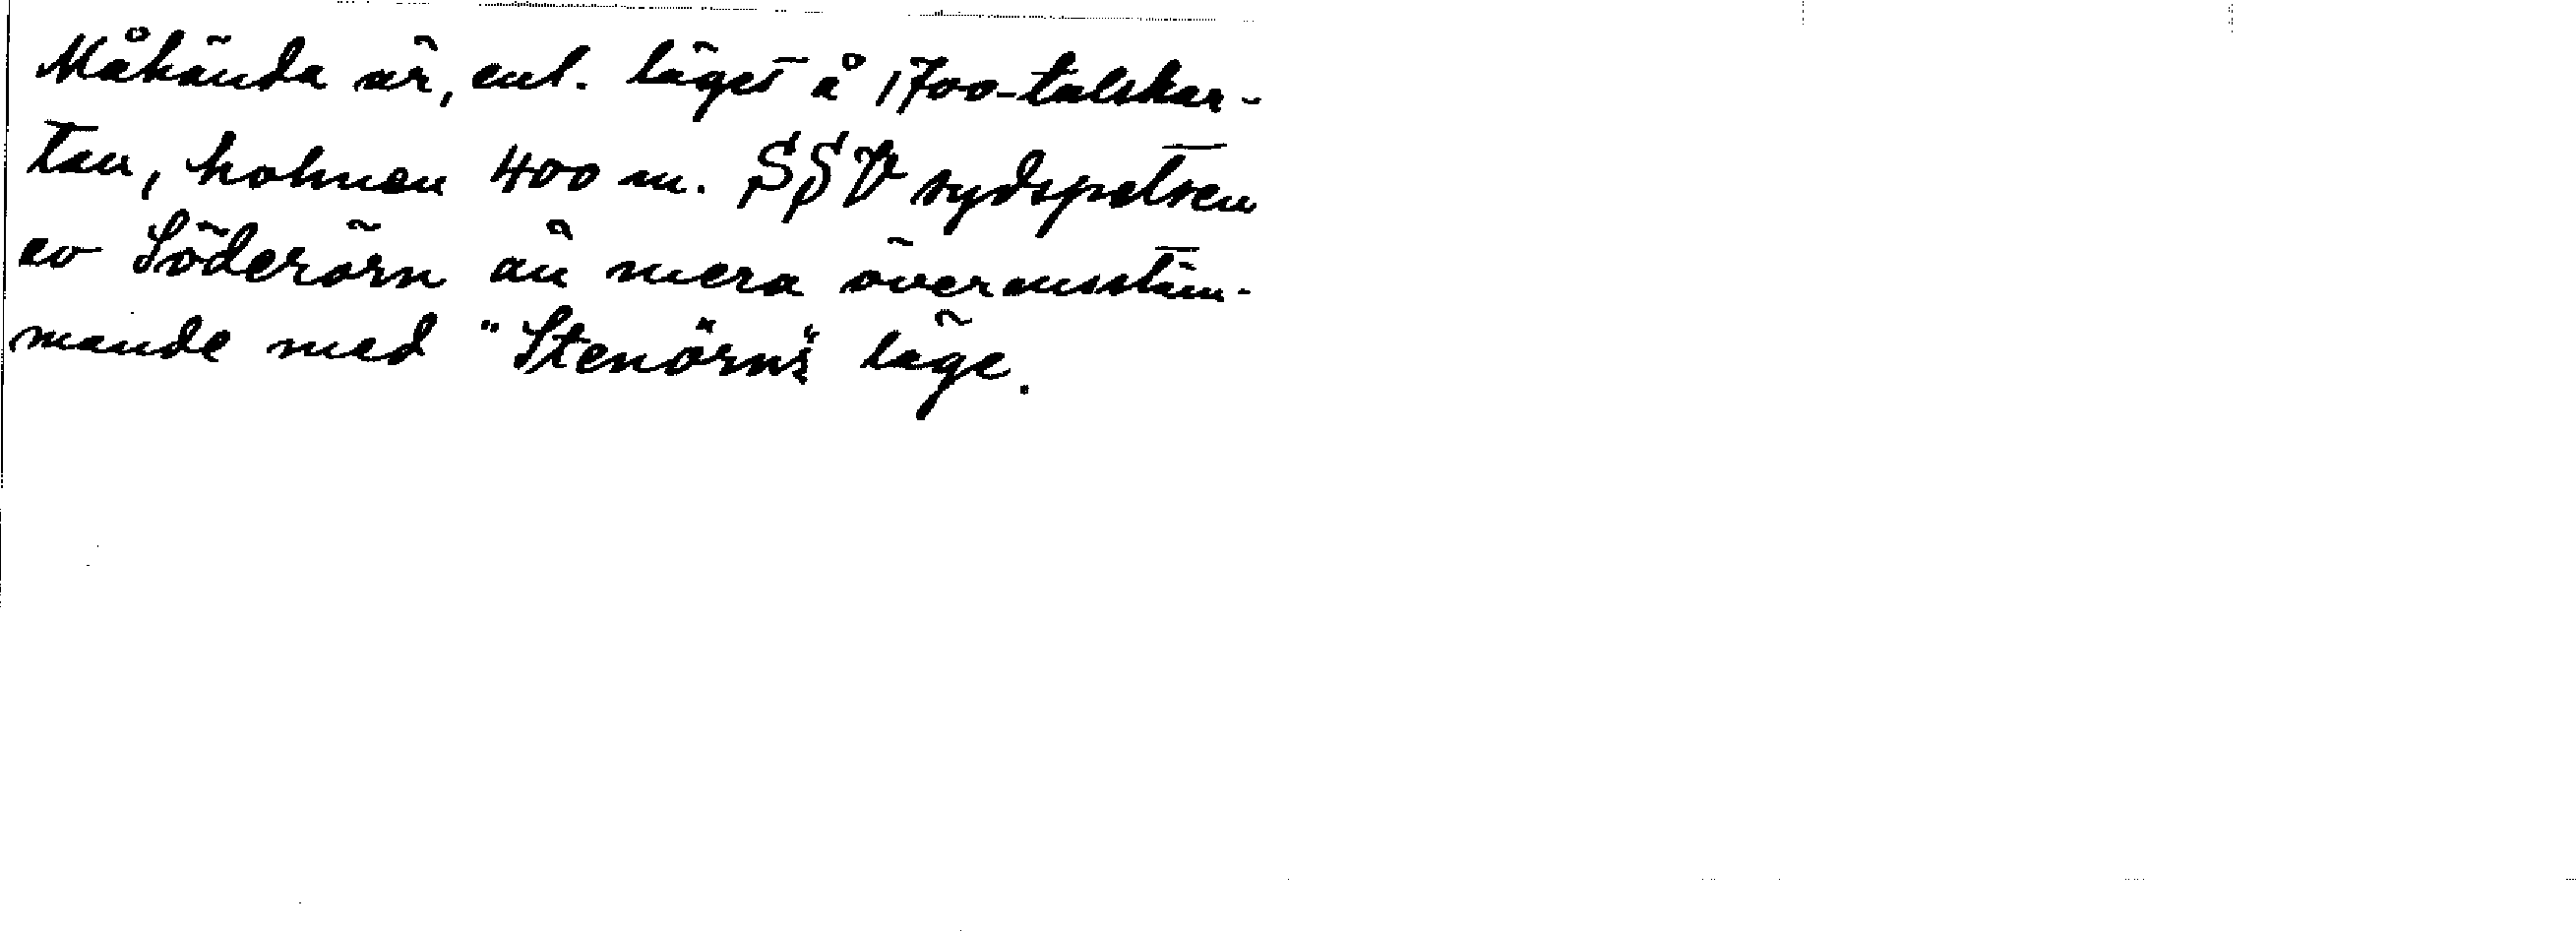 Måhända är, enl. läget å 1700-talskar-
tan, holmen 400 m. SSV sydspetsen
av Söderörn än mera överensstäm-
mande med "Stenörn":s läge.